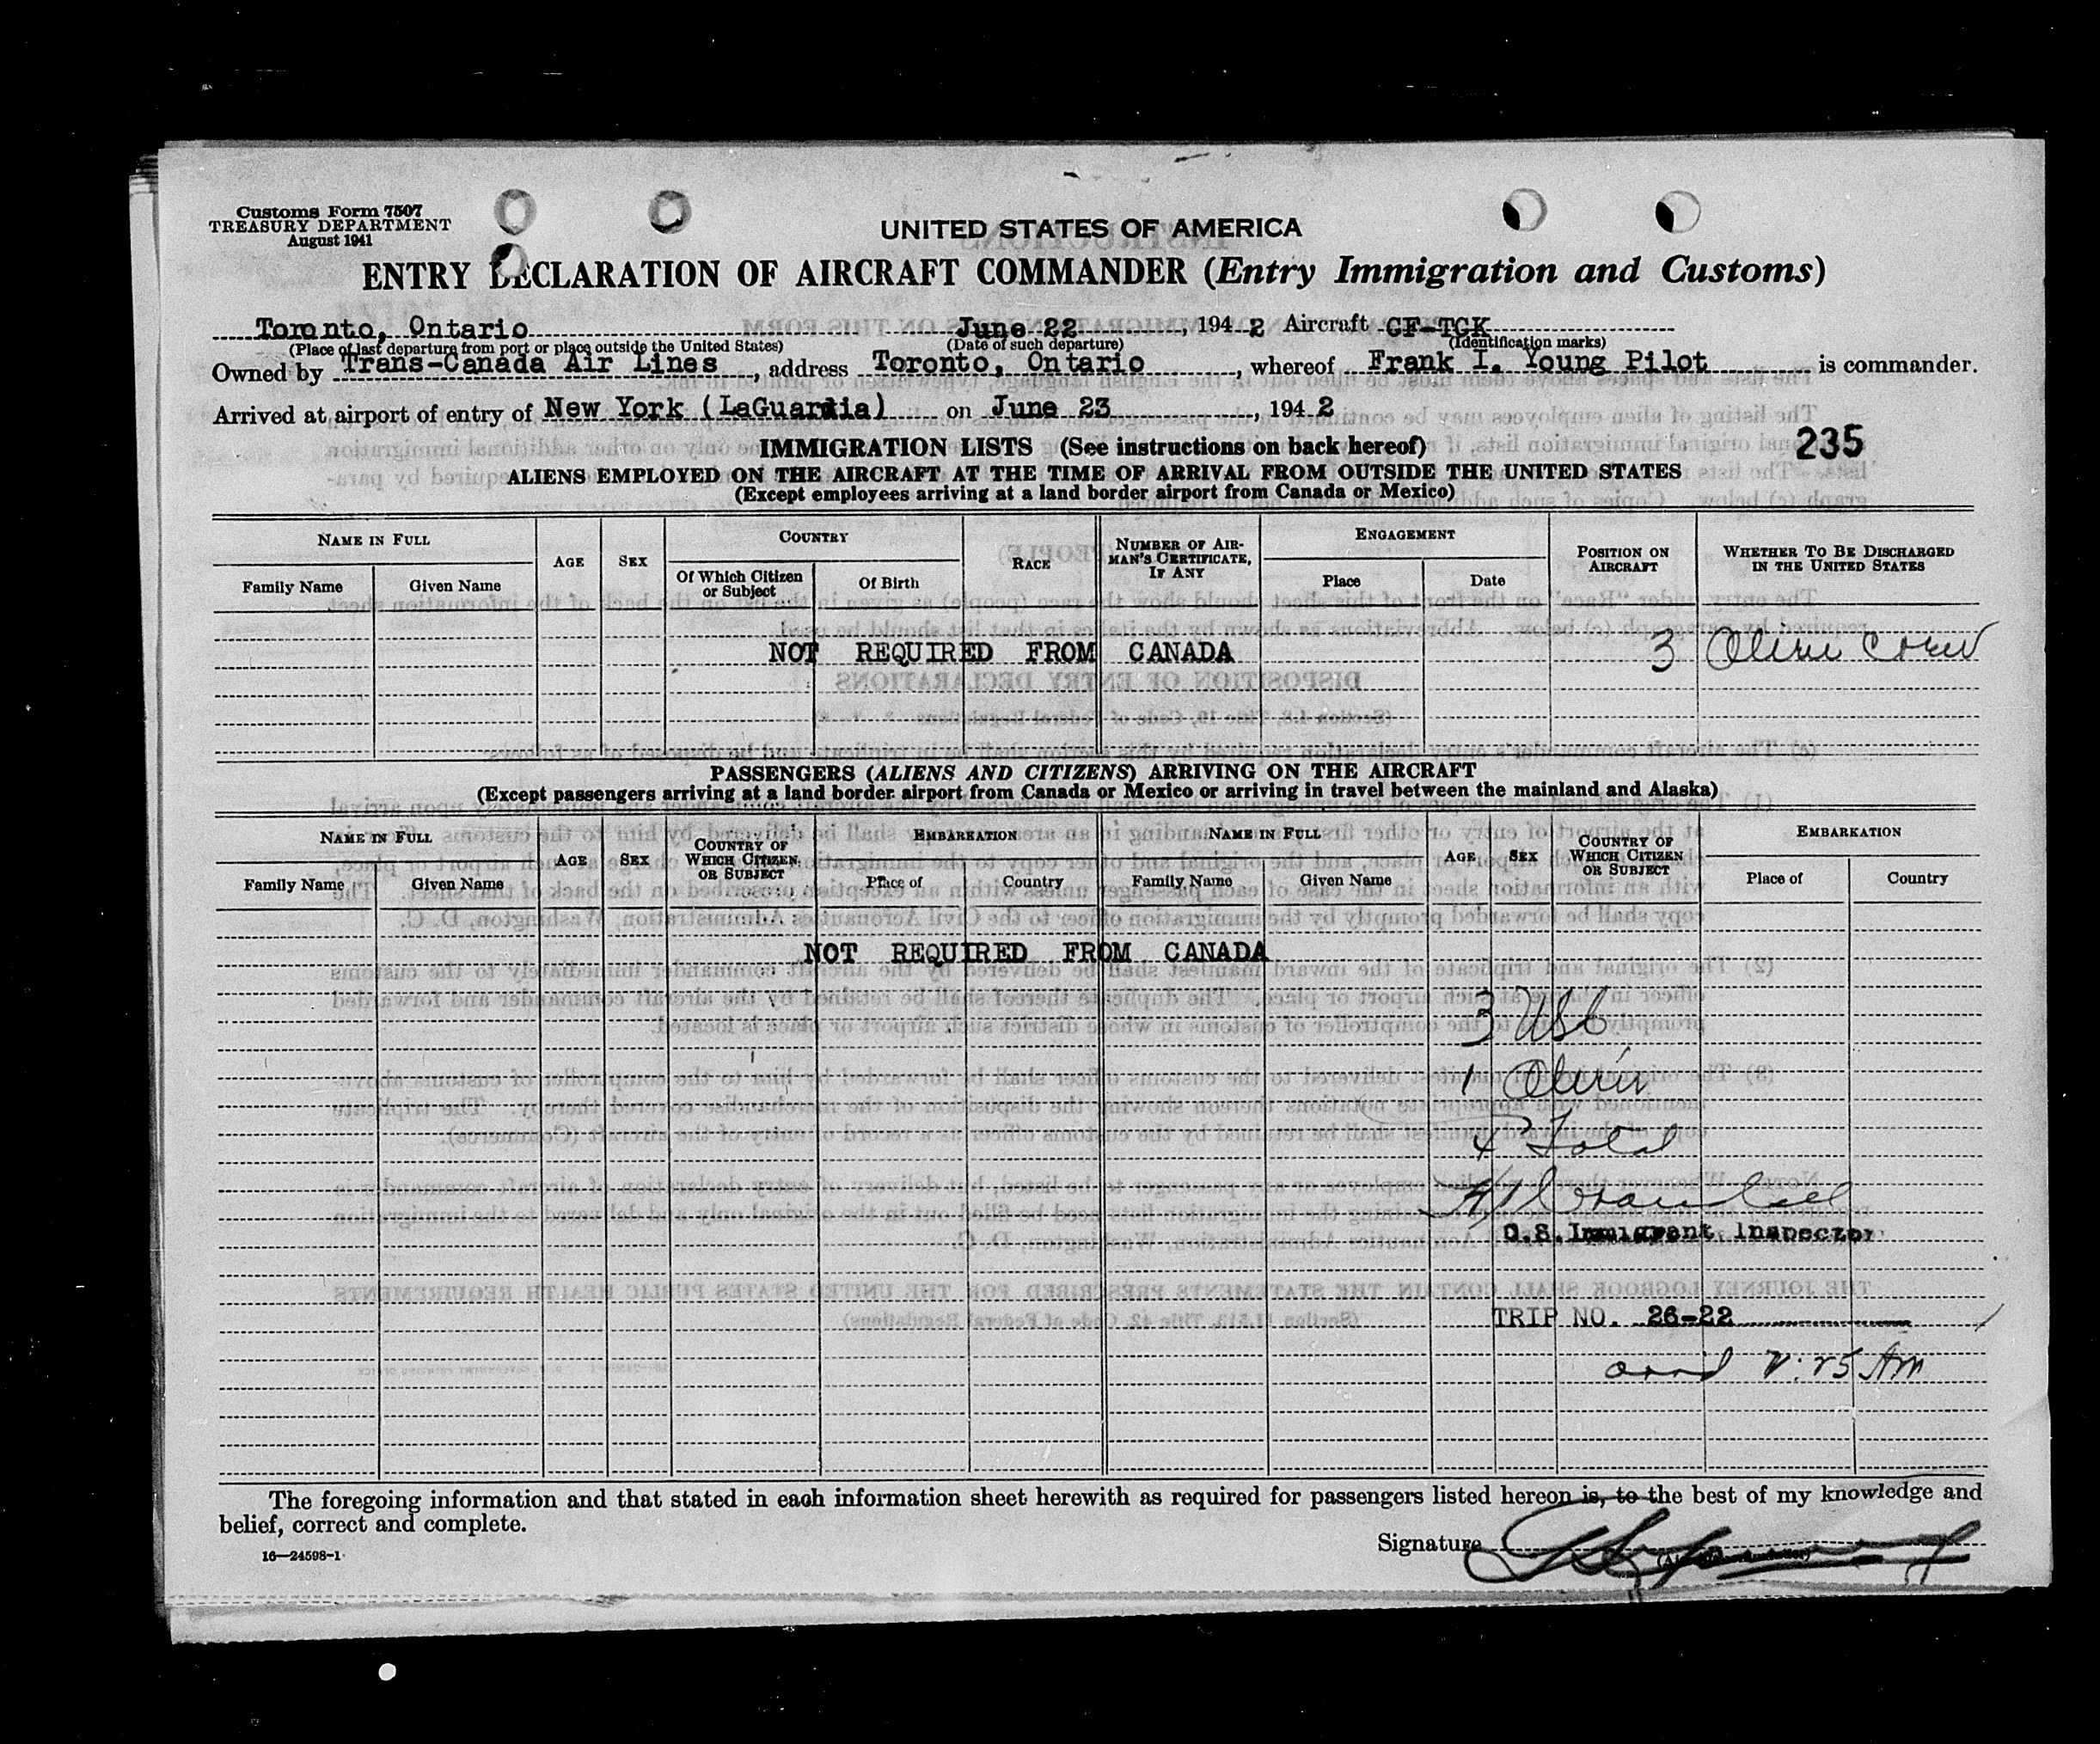 Customs Form 7507
TREASURY DEPARTMENT
August 1941
UNITED STATES OF AMERICA
ENTRY DECLARATION OF AIRCRAFT COMMANDER (Entry Immigration and Customs)
Toronto, Ontario June 22, 1942 Aircraft CF-TCK
(Place of last departure from port or place outside the United States) (Date of such departure) (Identification marks)
Owned by Trans-Canada Air Lines, address Toronto, Ontario, whereof Frank I. Young Pilot is commander.
Arrived at airport of entry of New York (LaGuardia) on June 23, 1942
IMMIGRATION LISTS (See instructions on back hereof) 235
ALIENS EMPLOYED ON THE AIRCRAFT AT THE TIME OF ARRIVAL FROM OUTSIDE THE UNITED STATES
(Except employees arriving at a land border airport from Canada or Mexico)
NAME IN FULL AGE SEX COUNTRY RACE NUMBER OF AIRMAN'S CERTIFICATE, IF ANY ENGAGEMENT POSITION ON AIRCRAFT WHETHER TO BE DISCHARGED IN THE UNITED STATES
Family Name Given Name Of Which Citizen or Subject Of Birth Place Date
NOT REQUIRED FROM CANADA 3 Alien Crew
PASSENGERS (ALIENS AND CITIZENS) ARRIVING ON THE AIRCRAFT
(Except passengers arriving at a land border airport from Canada or Mexico or arriving in travel between the mainland and Alaska)
NAME IN FULL AGE SEX COUNTRY OF WHICH CITIZEN OR SUBJECT EMBARKATION NAME IN FULL AGE SEX COUNTRY OF WHICH CITIZEN OR SUBJECT EMBARKATION
Family Name Given Name Place of Country Family Name Given Name Place of Country
NOT REQUIRED FROM CANADA
3 USC
1 Alien
4 Total
U.S. Immigrant Inspector
TRIP NO. 26-22
The foregoing information and that stated in each information sheet herewith as required for passengers listed hereon is, to the best of my knowledge and
belief, correct and complete.
Signature
16—24598-1